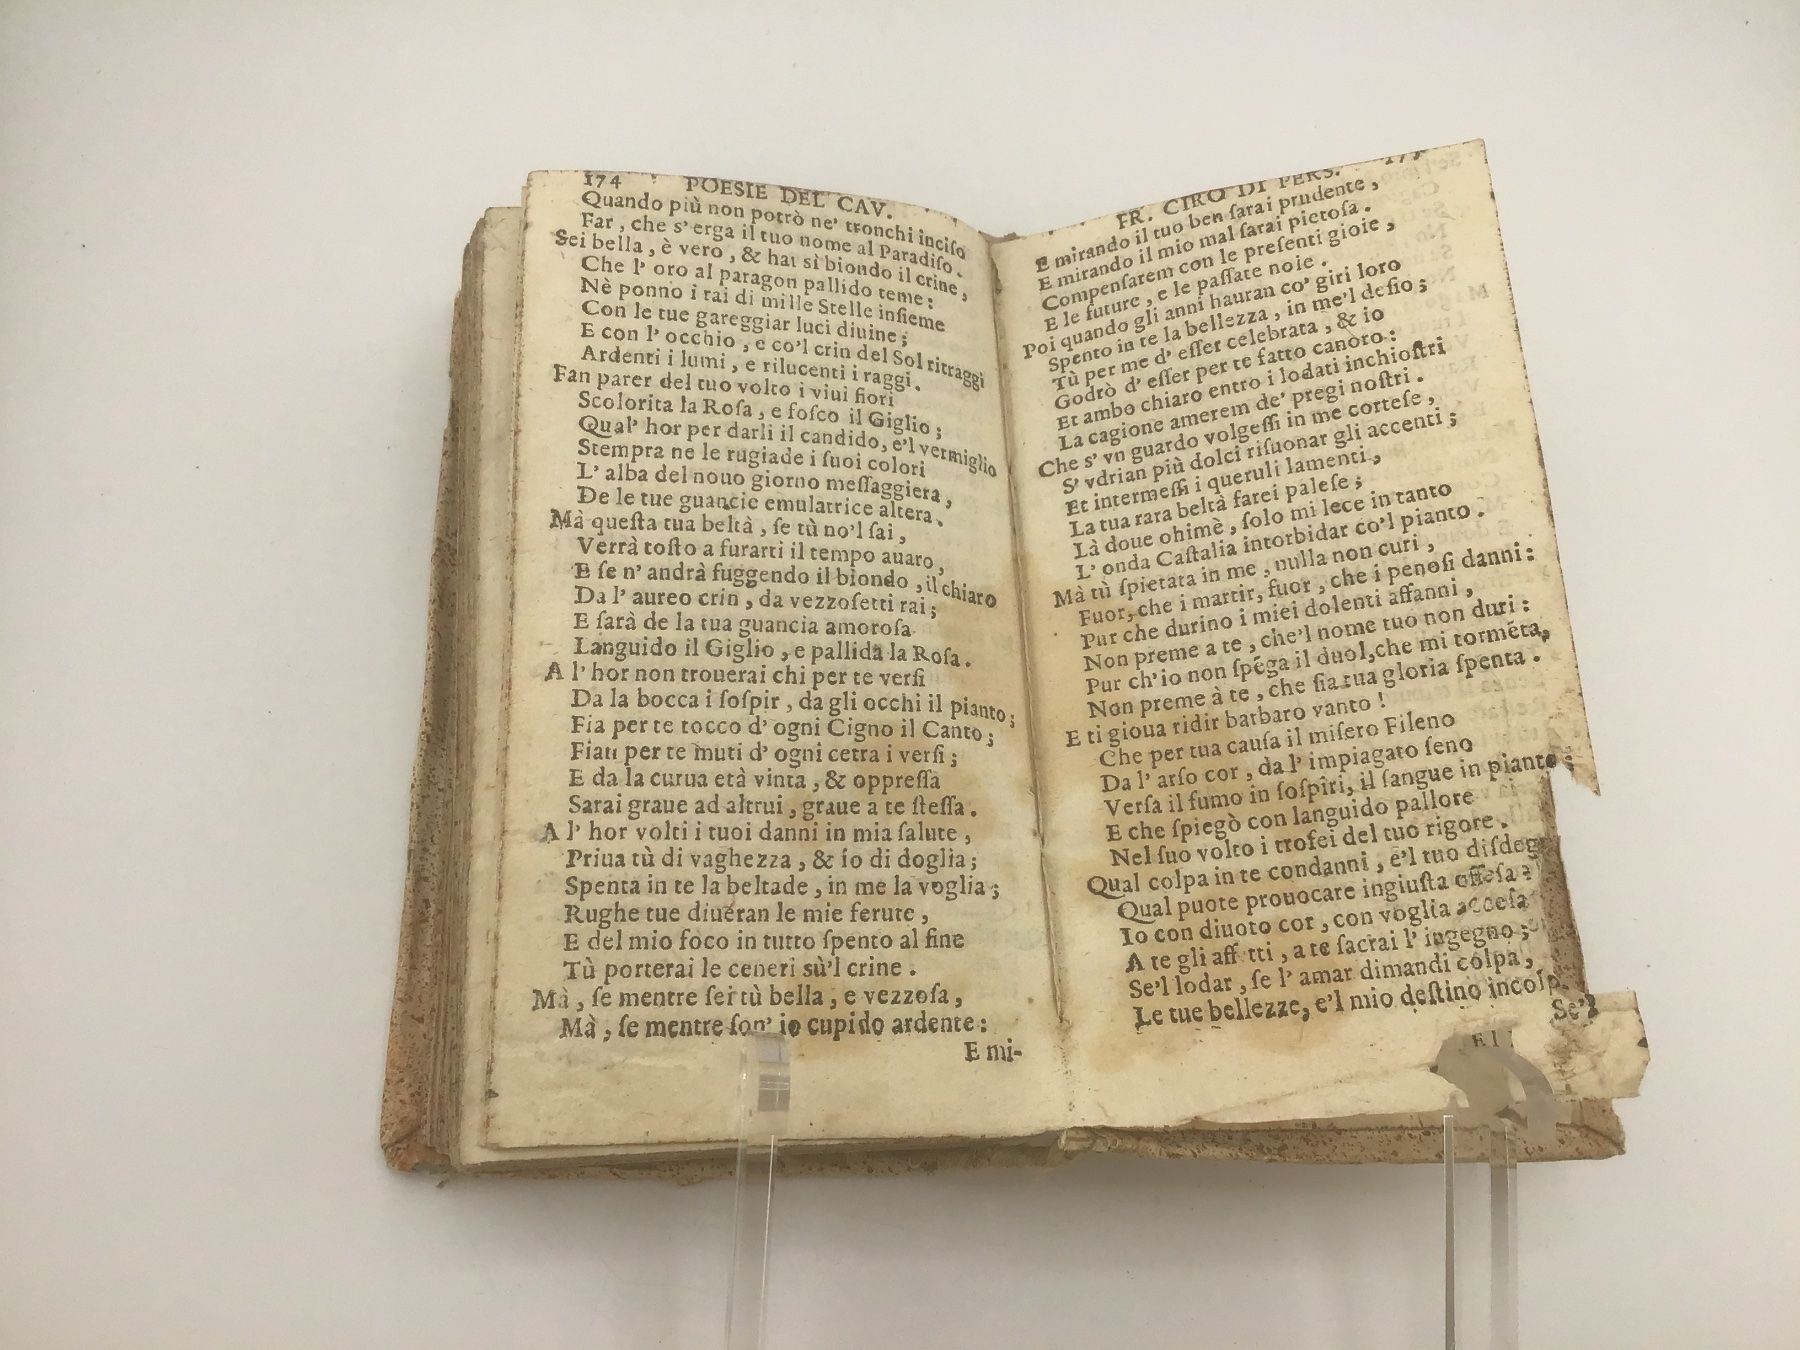 174 POESIE DEL CAV.
Quando più non potrò ne' tronchi inciſo
Far, che s' erga il tuo nome al Paradiſo.
Sei bella, è vero, & hai sì biondo il crine,
Che l' oro al paragon pallido teme:
Nè ponno i rai di mille Stelle inſieme
Con le tue gareggiar luci diuine;
E con l' occhio, e co'l crin del Sol ritraggi
Ardenti i lumi, e rilucenti i raggi.
Fan parer del tuo volto i viui fiori
Scolorita la Roſa, e foſco il Giglio;
Qual' hor per darli il candido, e'l vermiglio
Stempra ne le rugiade i ſuoi colori
L' alba del nouo giorno meſſaggiera,
De le tue guancie emulatrice altera.
Mà queſta tua beltà, ſe tù no'l ſai,
Verrà toſto a furarti il tempo auaro,
E ſe n' andrà fuggendo il biondo, il chiaro
Da l' aureo crin, da vezzoſetti rai;
E ſarà de la tua guancia amoroſa
Languido il Giglio, e pallida la Roſa.
A l' hor non trouerai chi per te verſi
Da la bocca i ſoſpir, da gli occhi il pianto;
Fia per te tocco d' ogni Cigno il Canto;
Fian per te muti d' ogni cetra i verſi;
E da la curua età vinta, & oppreſſa
Sarai graue ad altrui, graue a te ſteſſa.
A l' hor volti i tuoi danni in mia ſalute,
Priua tù di vaghezza, & io di doglia;
Spenta in te la beltade, in me la voglia;
Rughe tue diueran le mie ferute,
E del mio foco in tutto ſpento al fine
Tù porterai le ceneri sù'l crine.
Mà, ſe mentre ſei tù bella, e vezzoſa,
Mà, ſe mentre ſon' io cupido ardente:
E mi-
FR. CIRO DI PERS. 175
E mirando il tuo ben ſarai prudente,
E mirando il mio mal ſarai pietoſa.
Compenſarem con le preſenti gioie,
E le future, e le paſſate noie.
Poi quando gli anni hauran co' giri loro
Spento in te la bellezza, in me'l deſio;
Tù per me d' eſſer celebrata, & io
Godrò d' eſſer per te fatto canoro:
Et ambo chiaro entro i lodati inchioſtri
La cagione amerem de' pregi noſtri.
Che s' vn guardo volgeſſi in me corteſe,
S' vdrian più dolci riſuonar gli accenti;
Et intermeſſi i queruli lamenti,
La tua rara beltà farei paleſe;
Là doue ohimè, ſolo mi lece in tanto
L' onda Caſtalia intorbidar co'l pianto.
Mà tù ſpietata in me, nulla non curi,
Fuor, che i martir, fuor, che i penoſi danni:
Pur che durino i miei dolenti affanni,
Non preme a te, che'l nome tuo non duri:
Pur ch'io non ſpēga il duol,che mi tormēta,
Non preme à te, che ſia tua gloria ſpenta.
E ti gioua ridir barbaro vanto!
Che per tua cauſa il miſero Fileno
Da l' arſo cor, da l' impiagato ſeno
Verſa il fumo in ſoſpiri, il ſangue in pianto;
E che ſpiegò con languido pallore
Nel ſuo volto i trofei del tuo rigore.
Qual colpa in te condanni, e'l tuo diſdeg
Qual puote prouocare ingiuſta offeſa?
Io con diuoto cor, con voglia acceſa
A te gli aff tti, a te ſacrai l' ingegno;
Se'l lodar, ſe l' amar dimandi colpa,
Le tue bellezze, e'l mio deſtino incolp.
Se'l